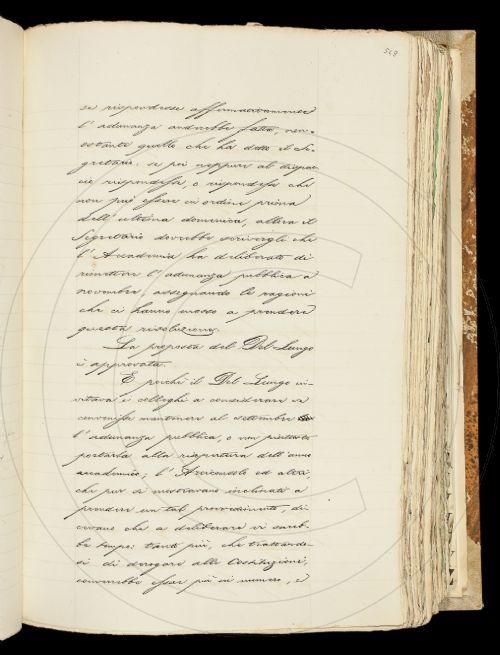 569
se rispondesse affermativamente
l'adunanza andrebbe fatta, non-
ostante quello che ha detto il Se-
gretario; se poi neppure al dispac-
cio rispondesse, o rispondesse che
non può essere in ordine prima
dell'ultima domenica, allora il
Segretario dovrebbe scrivergli che
l'Accademia ha deliberato di
rimettere l'adunanza pubblica a
novembre, assegnando le ragioni
che ci hanno mosso a prendere
questa risoluzione.
La proposta del Del-Lungo
è approvata.
E perchè il Del-Lungo in-
vitava i colleghi a considerare se
convenisse mantenere al settembre
l'adunanza pubblica, o non piuttosto
portarla alla riapertura dell'anno
accademico; l'Arciconsolo ed altri,
che pur si mostravano inclinati a
prendere un tal provvedimento, di-
cevano che a deliberare vi sareb-
be tempo: tanto più, che trattando-
si di derogare alle Costituzioni,
converrebbe esser più in numero, e